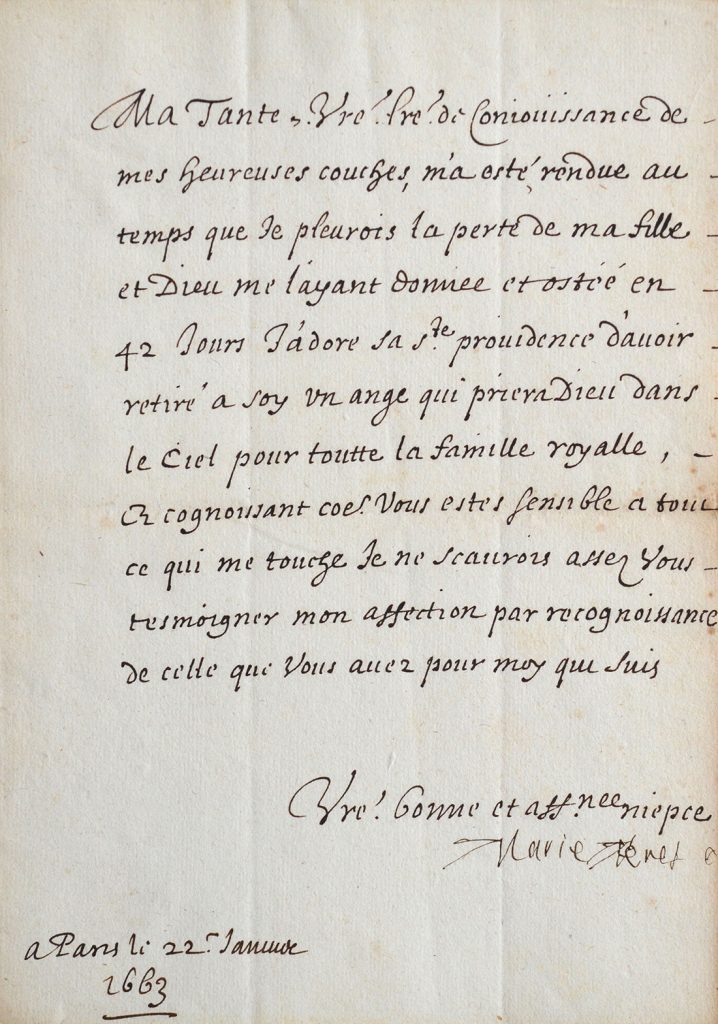 Ma Tante, Vre. lre. de Coniouissance de
mes heureuses couches, m'a esté rendue au
temps que Je pleurois la perte de ma fille
et Dieu me l'ayant donnee et ostéé en
42 Jours J'adore sa ste. prouidence d'auoir
retiré a soy vn ange qui priera Dieu dans
le Ciel pour toutte la famille royalle,
Et cognoissant coe. Vous estes sensible a tout
ce qui me touche Je ne scaurois assez Vous
tesmoigner mon affection par recognoissance
de celle que Vous auez pour moy qui suis
Vre. bonne et aff.nee niepce
Marie Teres
a Paris le 22e Januier
1663